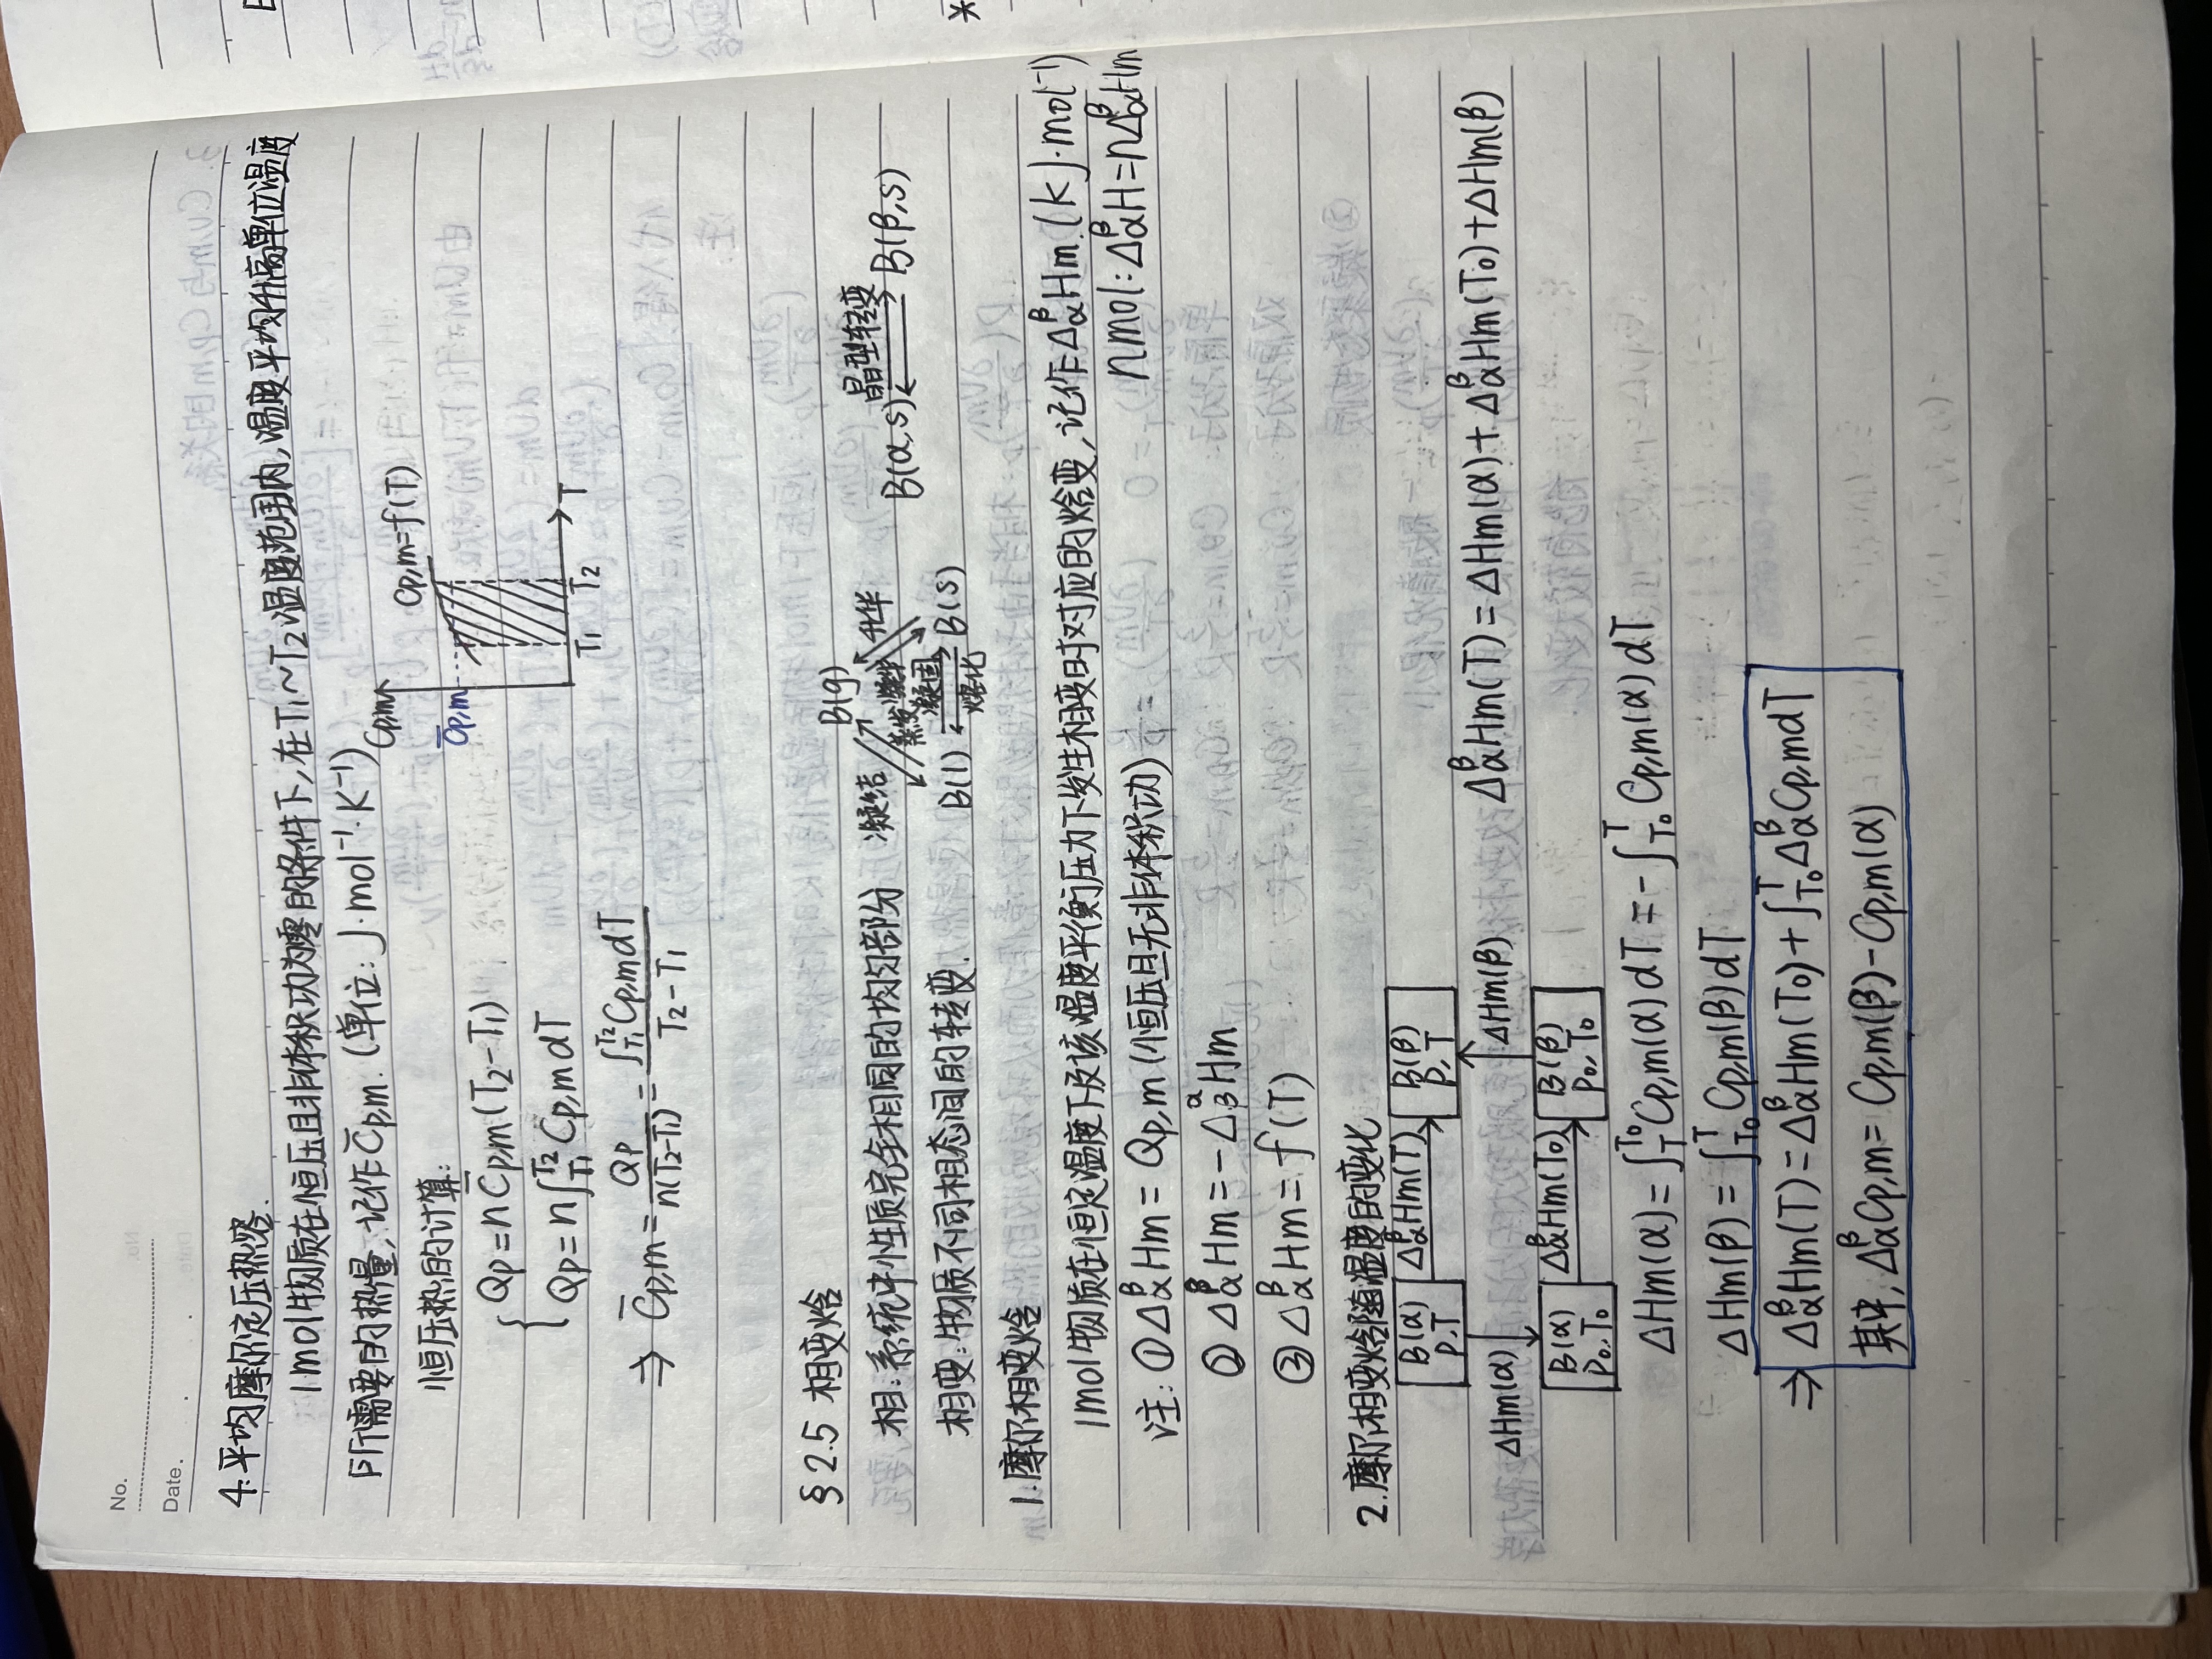 No.
Date.
4.平均摩尔定压热容.
1mol物质在恒压且非体积功为零的条件下,在T₁~T₂温度范围内,温度平均升高单位温度
所需要的热量,记作C̄p,m.(单位:J·mol⁻¹·K⁻¹)
Cp,m
Cp,m=f(T)
C̄p,m
T₁ T₂ T
恒压热的计算:
Qp=nC̄p,m(T₂-T₁)
Qp=n∫T₁T₂ Cp,mdT
⇒ C̄p,m=Qp/n(T₂-T₁)=∫T₁T₂ Cp,mdT/T₂-T₁
§2.5 相变焓
相:系统中性质完全相同的均匀部分
相变:物质不同相态间的转变.
B(g)
凝结 蒸发 凝华 升华
凝固
B(l) B(s)
熔化
晶型转变
B(α,s) B(β,s)
1.摩尔相变焓
1mol物质在恒定温度下及该温度平衡压力下发生相变时对应的焓变,记作Δ_α^βHm.(KJ·mol⁻¹)
nmol:Δ_α^βH=nΔ_α^βHm
注:①Δ_α^βHm=Qp,m(恒压且无非体积功)
②Δ_α^βHm=-Δ_β^αHm
③Δ_α^βHm=f(T)
2.摩尔相变焓随温度的变化
B(α) Δ_α^βHm(T) B(β)
p,T p,T
ΔHm(α) ΔHm(β)
Δ_α^βHm(T)=ΔHm(α)+Δ_α^βHm(T₀)+ΔHm(β)
B(α) Δ_α^βHm(T₀) B(β)
p₀,T₀ p₀,T₀
ΔHm(α)=∫_T^T₀ Cp,m(α)dT=-∫_T₀^T Cp,m(α)dT
ΔHm(β)=∫_T₀^T Cp,m(β)dT
⇒ Δ_α^βHm(T)=Δ_α^βHm(T₀)+∫_T₀^T Δ_α^βCp,mdT
其中,Δ_α^βCp,m=Cp,m(β)-Cp,m(α)